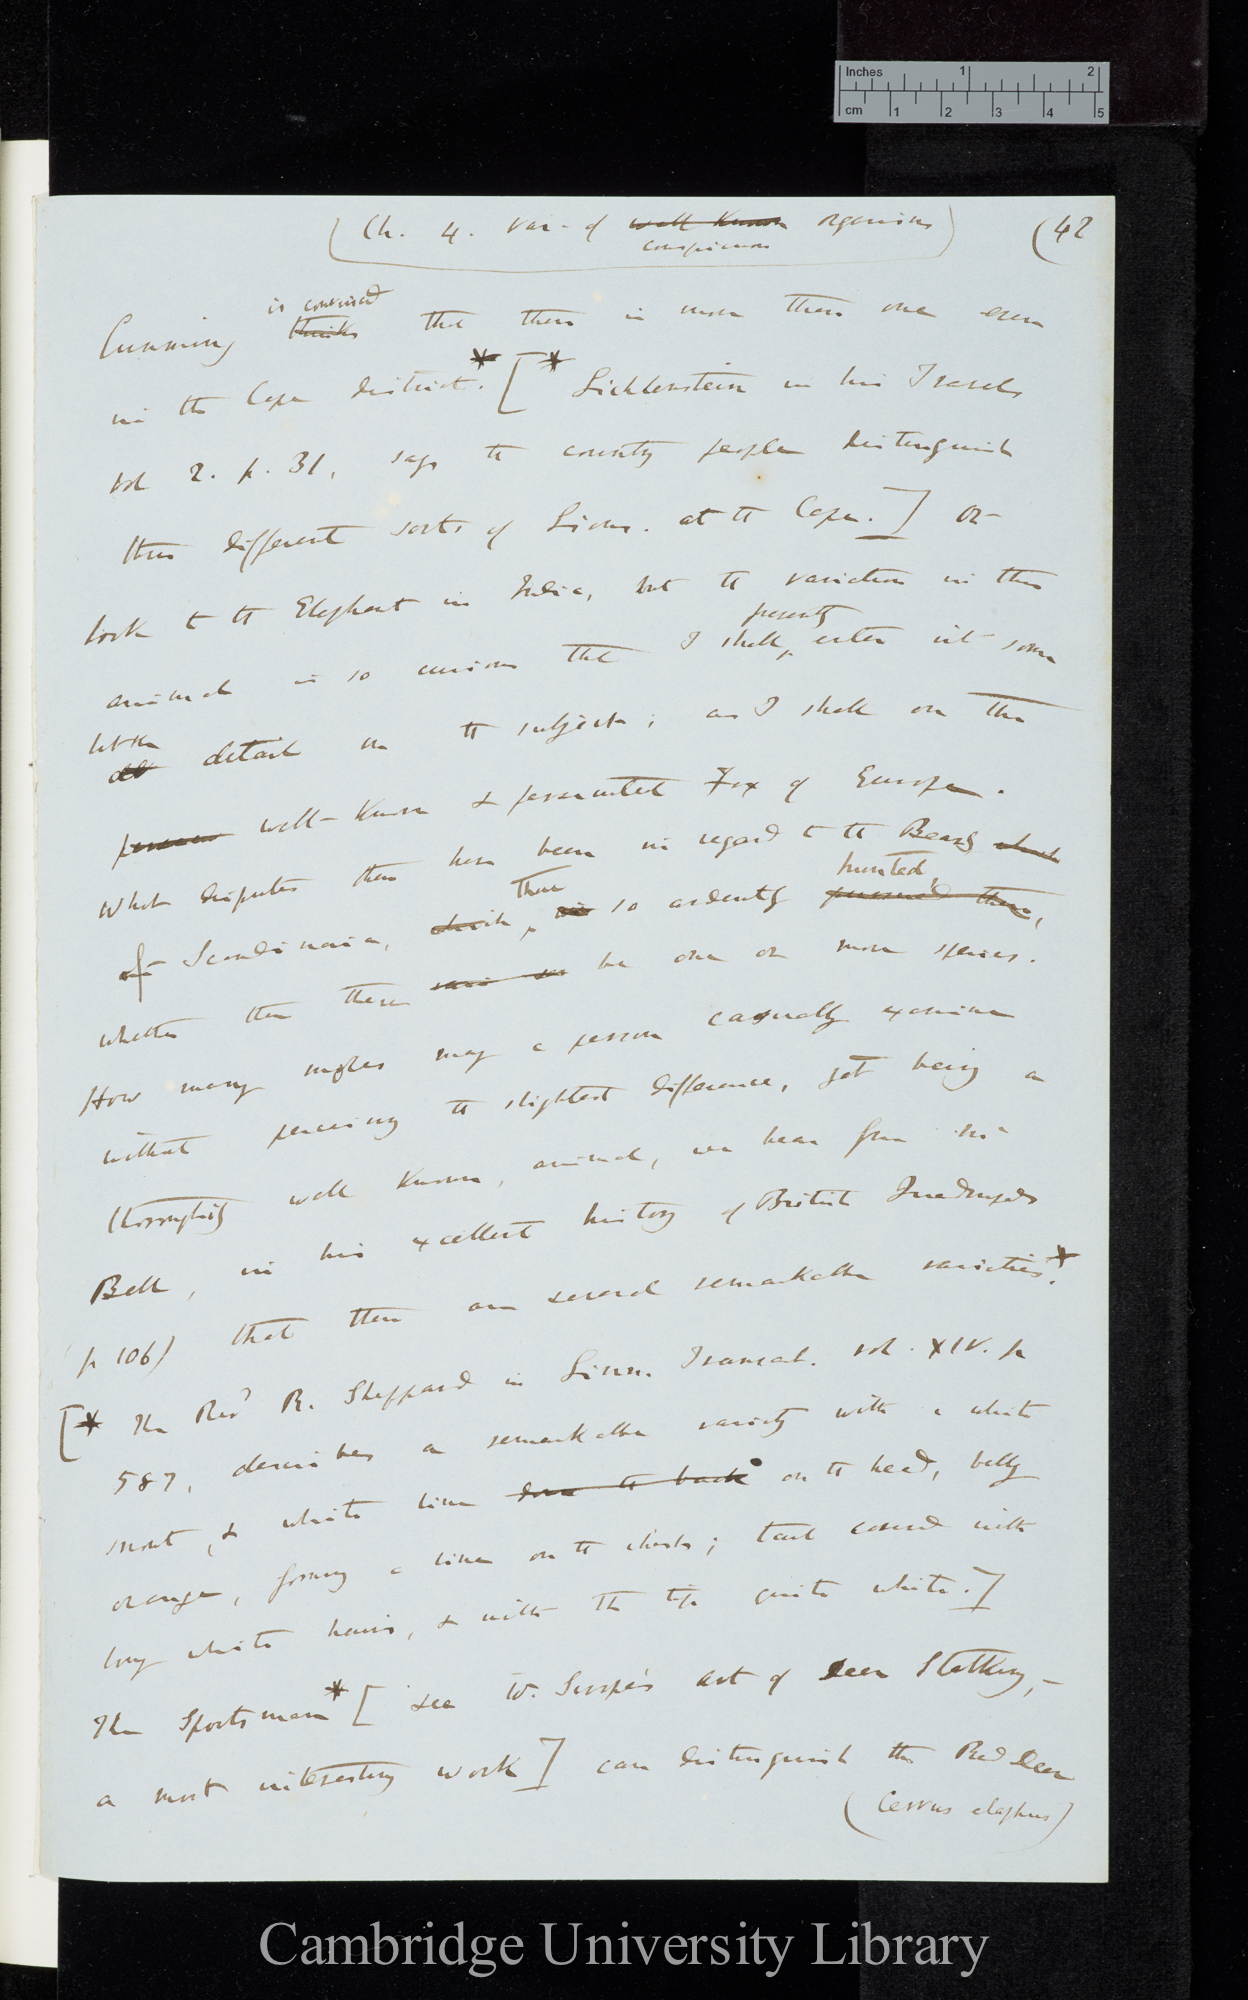 Inches 1 2
cm 1 2 3 4 5
(Ch. 4. Var. of well known organisms) (42
conspicuous
is convinced
Cumming thinks that there is more than one even
in the Cape district.* [* Lichtenstein in his Travels
vol 2. p. 31, says the country people distinguish
three different sorts of Lions. at the Cape.] Or
look to the Elephant in India, but the variation in this
presently
animal is so curious that I shall, enter into some
little
detail on the subject; as I shall on the
well-known & persecuted Fox of Europe.
What disputes there have been in regard to the Bears which
there hunted,
of Scandinavia, which, are so ardently pursued there,
whether there these be one or more species.
How many moles may a person casually examine
without perceiving the slightest difference, yet being an
thoroughly well known, animal, we hear from Mr
Bell, in his excellent history of British Quadrupeds
(p 106) that there are several remarkable varieties*.
[* The Revd R. Sheppard in Linn. Transact. vol. XIV. p
587, describes a remarkable variety with a white
snout, & white line down the back on the head, belly
orange, forming a line on the cheeks; tail covered with
long white hairs, & with the tip quite white.]
The Sportsman* [see W. Scrope's art of Deer Stalking,—
a most interesting work] can distinguish the Red Deer
(Cervus elaphus)
Cambridge University Library